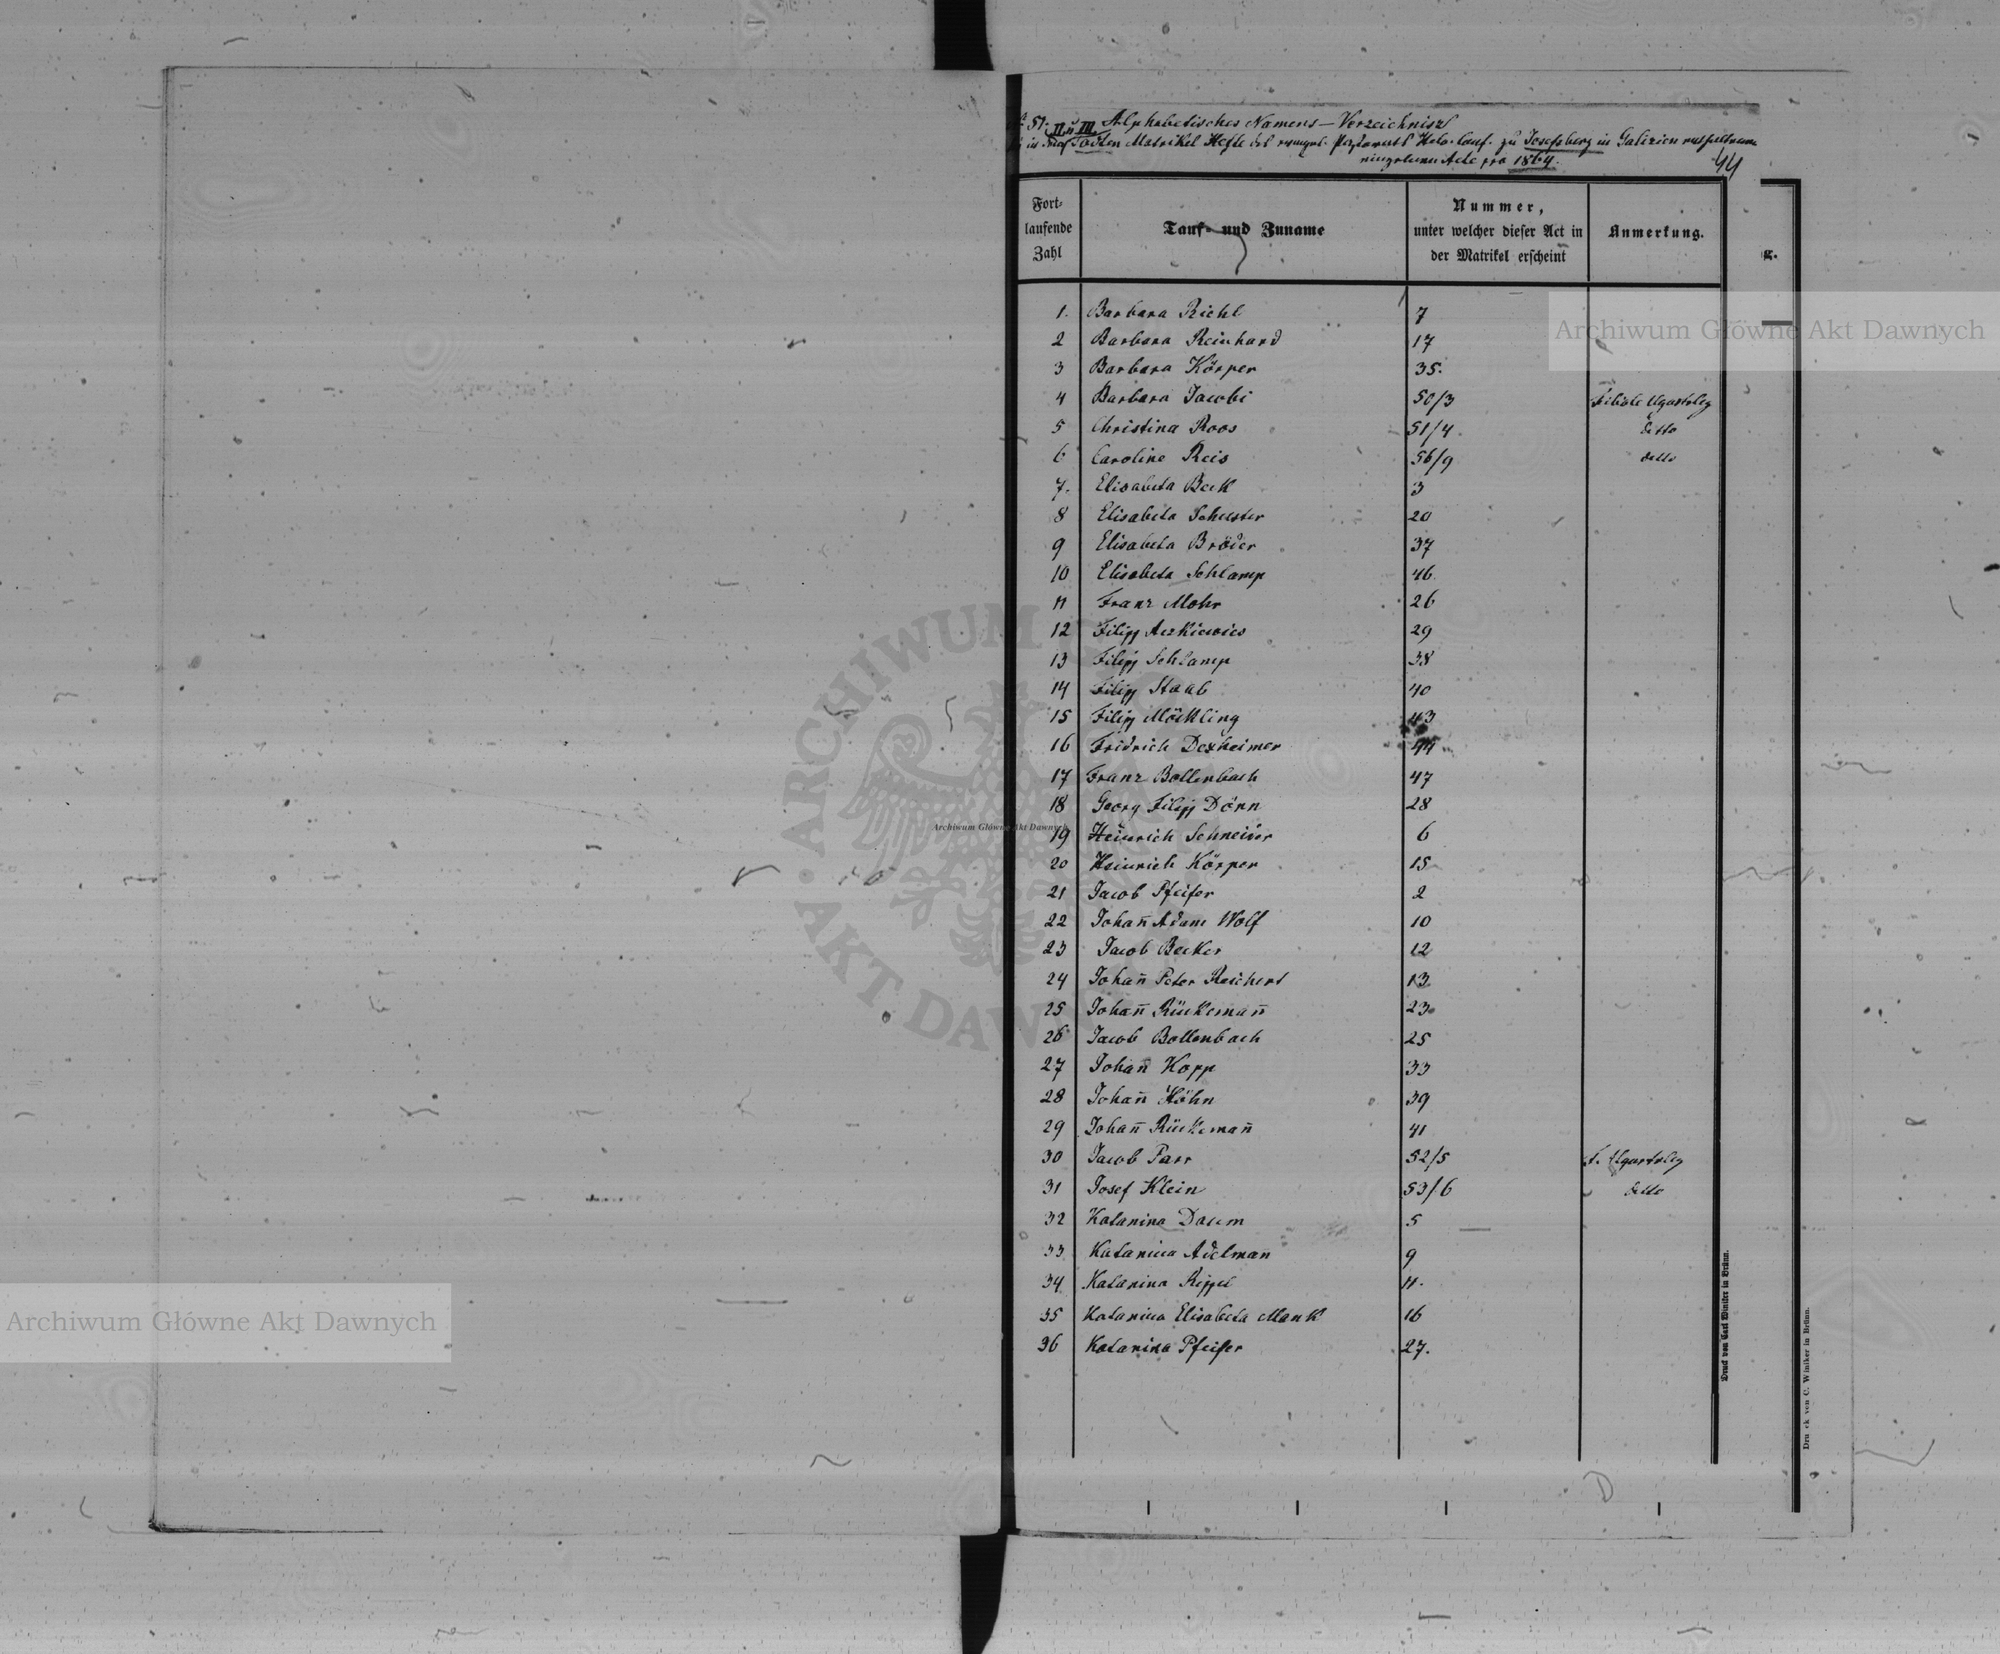 Alphabetisches Namens-Verzeichnisz
Todten Matrikel Hefte des evangel. Pfarramts Helv. Conf. zu Josefsberg in Galizien
Acte pro 1864.
44
Fort-
laufende
Zahl
Tauf- und Zuname
Nummer,
unter welcher dieser Act in
der Matrikel erscheint
Anmerkung.
g.
1. Barbara Richl 7
2 Barbara Reinhard 17
3 Barbara Körper 35.
4 Barbara Jacobi 50/3 Filiale Ugartsberg
5 Christina Roos 51/4 detto
6 Caroline Reis 56/9 detto
7. Elisabeta Beck 3
8 Elisabeta Schuster 20
9 Elisabeta Bröder 37
10 Elisabeta Schlamp 46
11 Franz Mohr 26
12 Filipp 29
13 Filipp Schlamp 38
14 Filipp Staab 40
15 Filipp Möckling 43
16 Fridrich Dexheimer 44
17 Franz Bollenbach 47
18 Georg Filipp Dörn 28
19 Heinrich Schneider 6
20 Heinrich Körper 15
21 Jacob Pfeifer 2
22 Johan̄ Adam Wolf 10
23 Jacob Becker 12
24 Johan̄ Peter Reichert 13
25 Johan̄ Rückeman̄ 23
26 Jacob Bollenbach 25
27 Johan̄ Kopp 33
28 Johan̄ Höhn 39
29 Johan̄ Rückeman̄ 41
30 Jacob Parr 52/5 F. Ugartsberg
31 Josef Klein 53/6 detto
32 Katarina Daum 5
33 Katarina Adelman 9
34 Katarina Rippel 11.
35 Katarina Elisabeta Mank 16
36 Katarina Pfeifer 27.
Druck von Carl Winiker in Brünn.
Druck von C. Winiker in Brünn.
Archiwum Główne Akt Dawnych
ARCHIWUM
AKT DAW
Archiwum Główne Akt Dawnych
Archiwum Główne Akt Dawnych